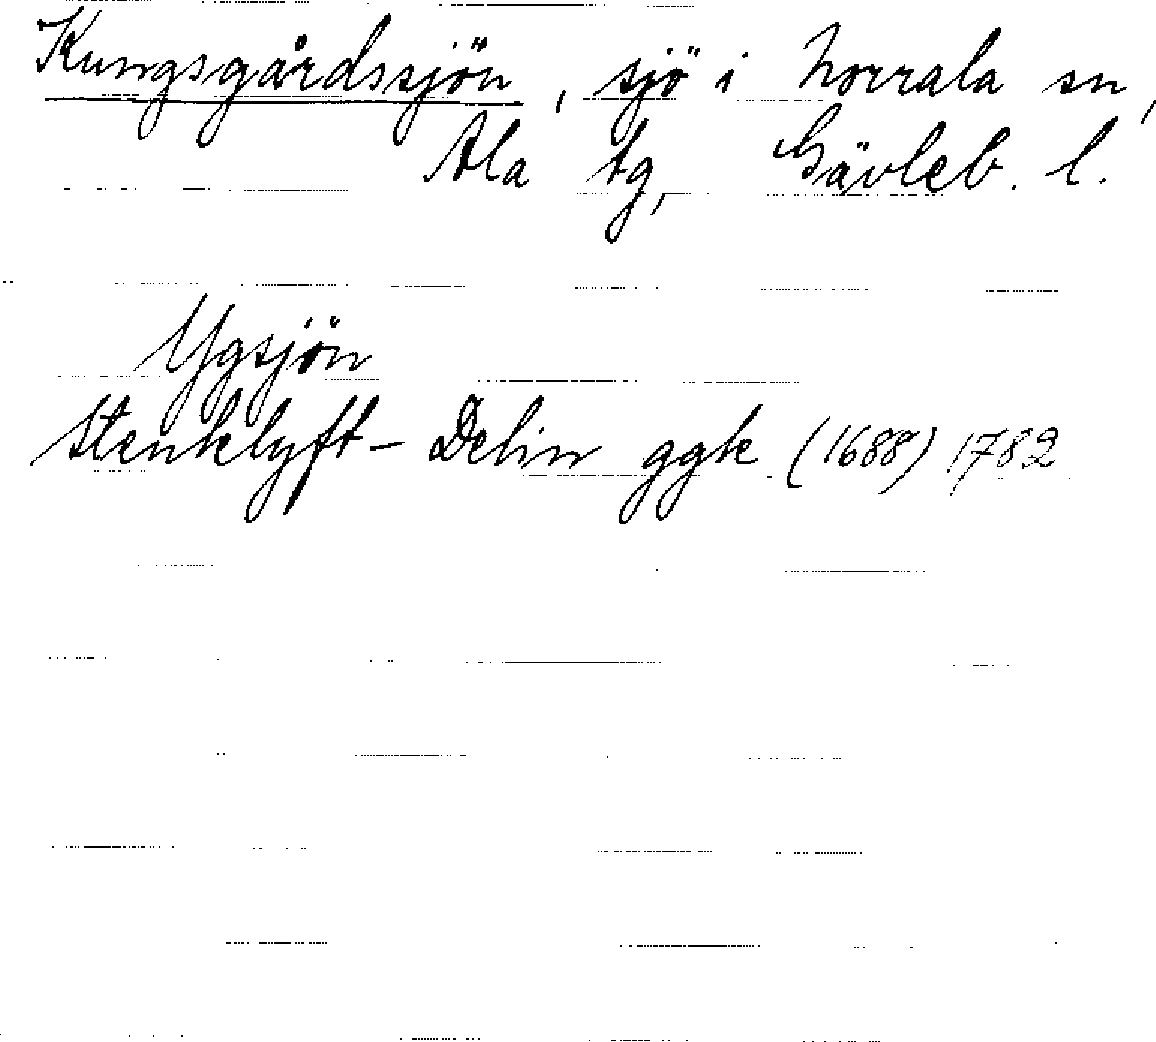 Kungsgårdssjön, sjö i Norrala sn,
Ala tg, Gävleb. l.
Ygsjön
Stenklyft - Delin ggk (1688) 1782